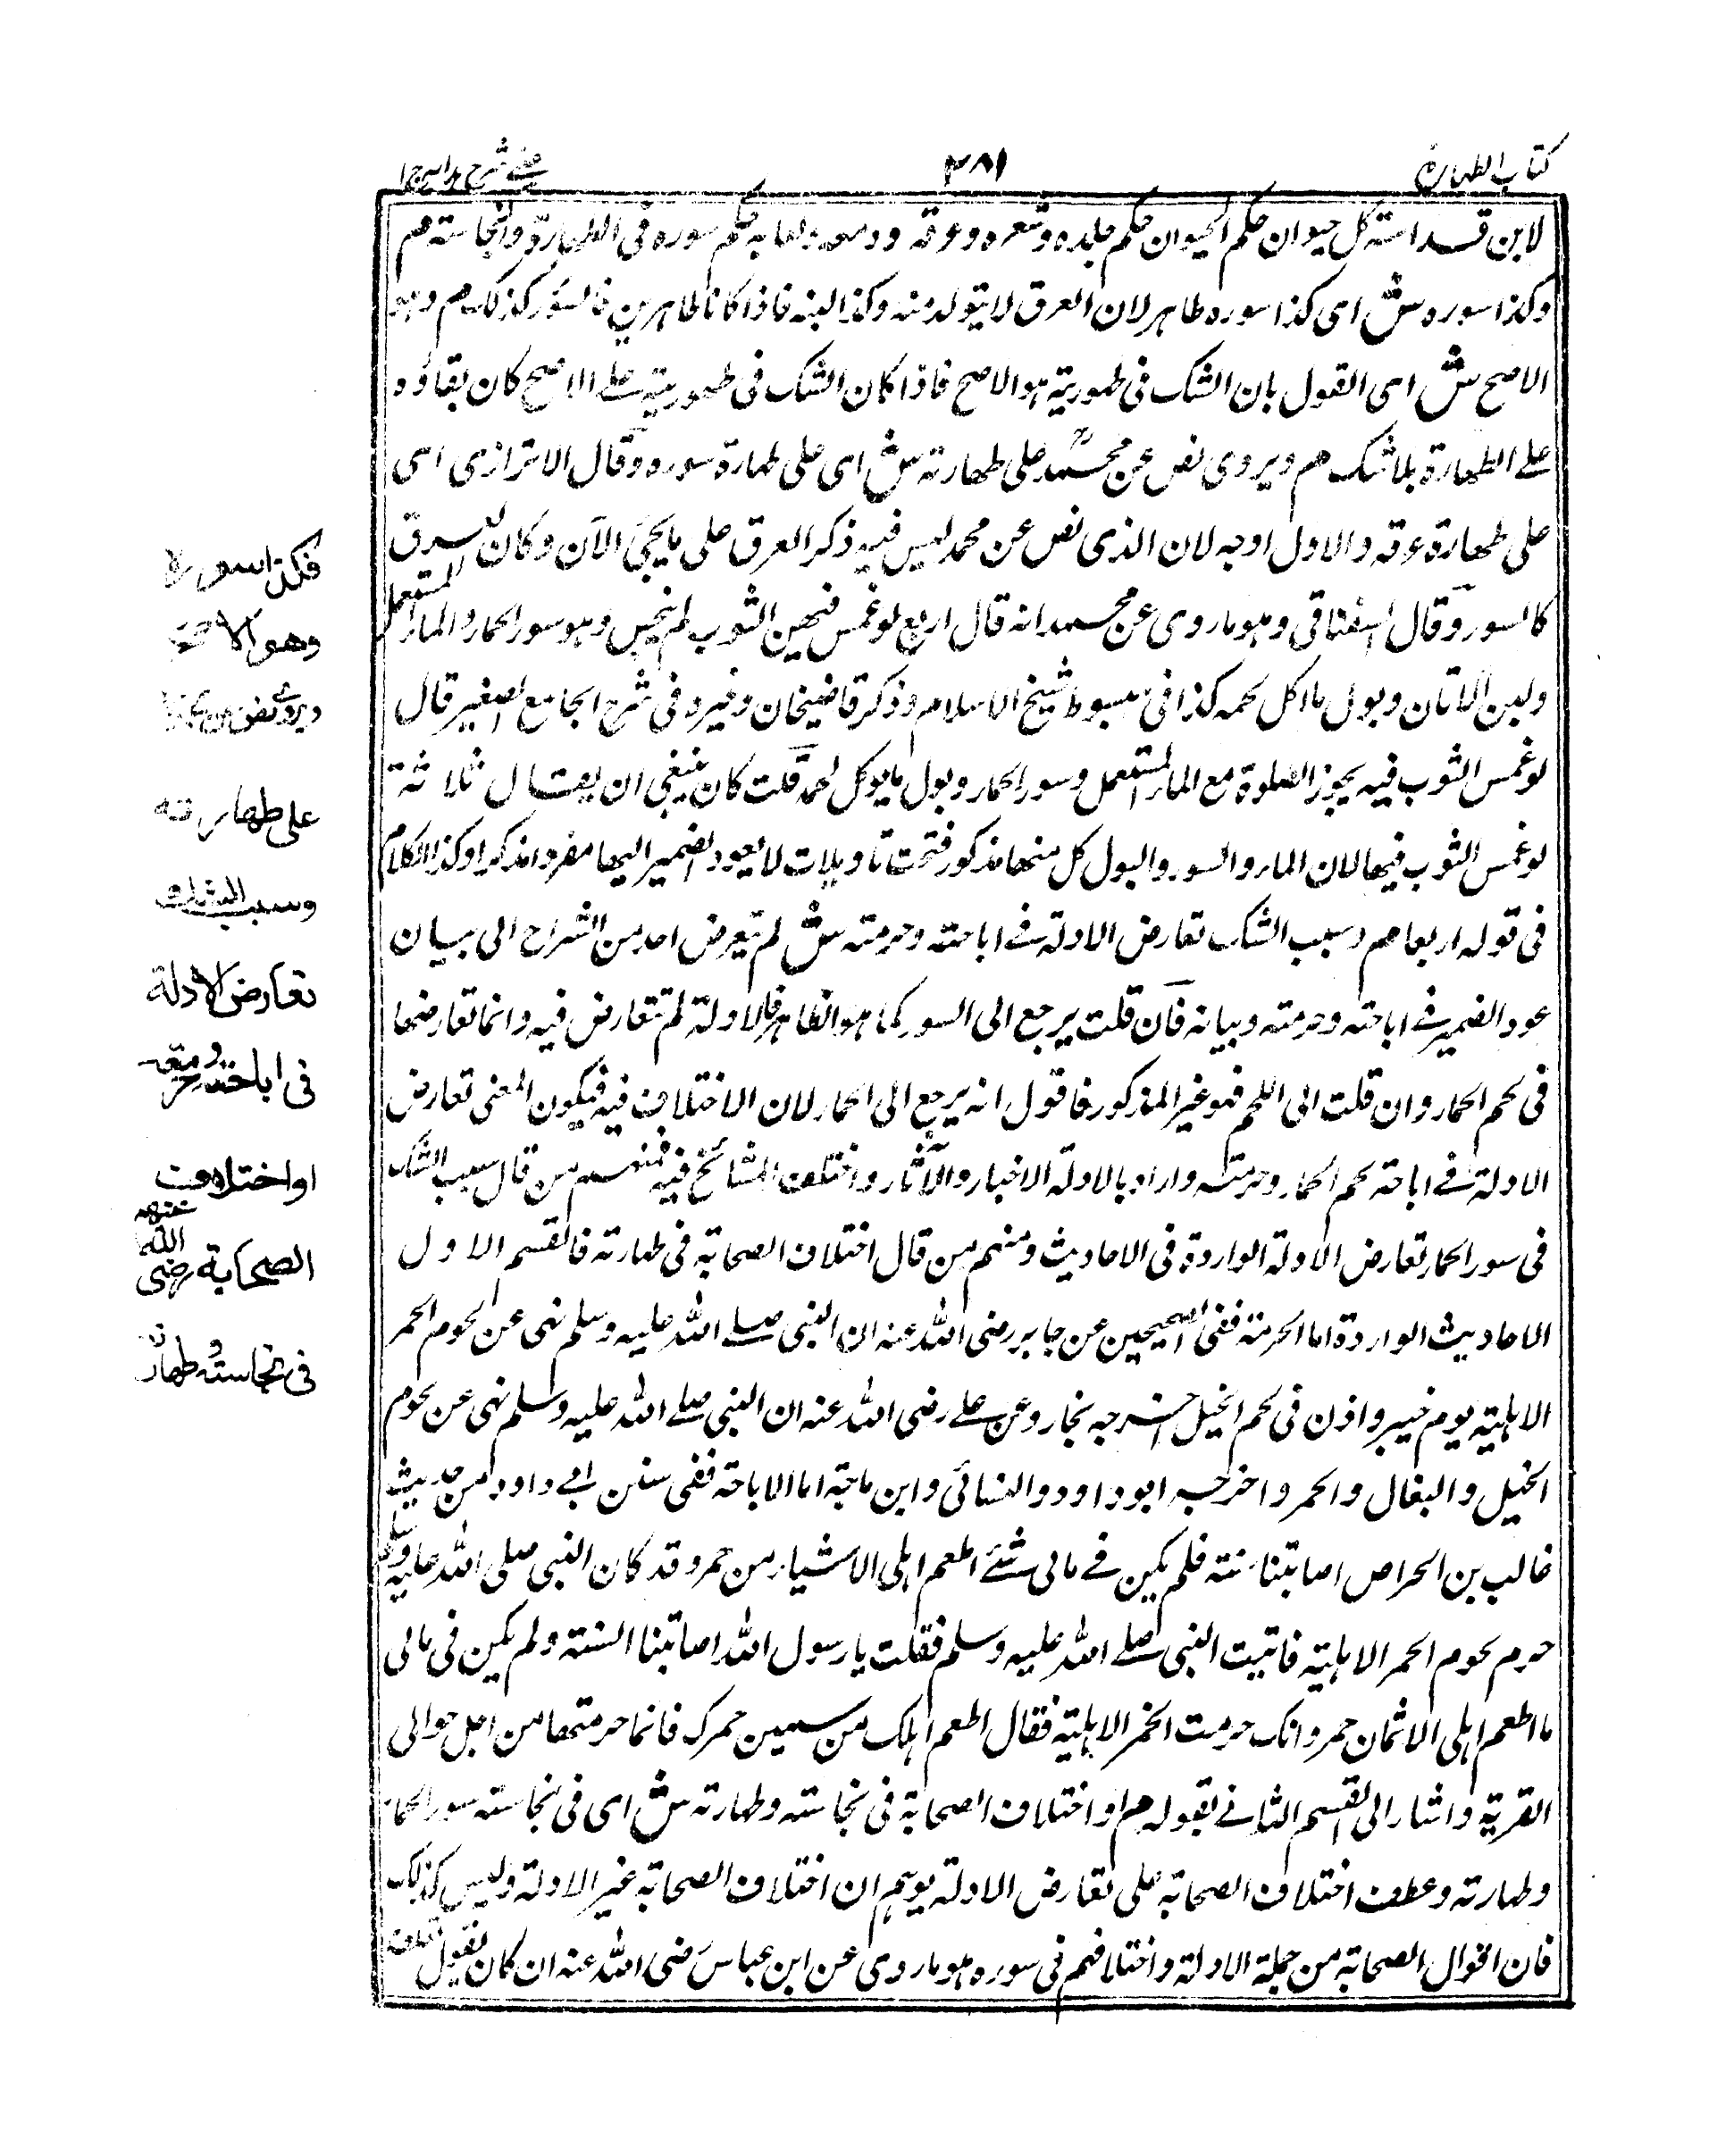 كتاب الطهارة
٣٨١
عيني شرح هدايه ج١
لابن قدامته كل حيوان حكم الحيوان حكم جلده وشعره وعرقه ودمعه ولعابه حكم سوره فى الطهارة والنجاسته م
وكذا سوره ش اى كذا سوره طاهر لان العرق لا يتولد منه وكذا لبنه فاذا كانا طاهرين فالسؤر كذلك م وهو
الاصح ش اى القول بان الشك فى طهوريته هو الاصح فاذا كان الشك فى طهوريته على الاصح كان بقاؤه
على الطهارة بلا شك م ويروى نص عن محمدؒ على طهارته ش اى على طهارة سوره وقال الاترازى اى
على طهارة عرقه والاول اوجه لان الذى نص عن محمد ليس فيه ذكر العرق على ما يجئ الآن وكان العرق
كالسور وقال السغناقى وهو ما روى عن محمد انه قال اربع لو غمس فيهن الثوب لم ينجس وهو سور الحمار والماء المستعمل
ولبن الاتان وبول ما اكل لحمه كذا فى مبسوط شيخ الاسلام وذكر قاضيخان وغيره فى شرح الجامع الصغير قال
لو غمس الثوب فيه يجوز الصلوة مع الماء المستعمل وسور الحمار وبول ما يوكل لحمه قلت كان ينبغى ان يقال ثلاثة
لو غمس الثوب فيها لان الماء والسور والبول كل منها مذكور فتحت تاويلات لا يعود الضمير اليها مفردا مذكرا وكذا الكلام
فى قوله اربعا م وسبب الشك تعارض الادلة فے اباحته وحرمته ش لم يتعرض احد من الشراح الى بيان
عود الضمير فے اباحته وحرمته وبيانه فان قلت يرجع الى السور كما هو الظاهر فالادلة لم تتعارض فيه وانما تعارضها
فى لحم الحمار وان قلت الى اللحم فهو غير المذكور فاقول انه يرجع الى الحمار لان الاختلاف فيه فيكون المعنى تعارض
الادلة فے اباحة لحم الحمار وحرمته واراد بالادلة الاخبار والآثار واختلف المشائخ فيه فمنهم من قال سبب الشك
فى سور الحمار تعارض الادلة الواردة فى الاحاديث ومنهم من قال اختلاف الصحابة فى طهارته فالقسم الاول
الاحاديث الواردة اما الحرمة ففى الصحيحين عن جابر رضى الله عنه ان النبى صلے الله عليه وسلم نهى عن لحوم الحمر
الاهلية يوم خيبر واذن فى لحم الخيل اخرجه بخار وعن علے رضى الله عنه ان النبى صلے الله عليه وسلم نهى عن لحوم
الخيل والبغال والحمر واخرجه ابو داود والنسائى وابن ماجة اما الاباحة ففى سنن ابى داود من حديث
غالب بن الحراص اصابتنا سنته فلم يكن فے مالى شئے اطعم اهلى الا شيار من حمر وقد كان النبى صلى الله عليه وسلم
حرم لحوم الحمر الاهلية فاتيت النبى صلے الله عليه وسلم فقلت يا رسول الله اصابتنا السنة ولم يكن فى مالى
ما اطعم اهلى الا ثمان حمر وانك حرمت الحمر الاهلية فقال اطعم اهلك من سمين حمرك فانما حرمتها من اجل جوالى
القرية واشار الى القسم الثانے بقوله م او اختلاف الصحابة فى نجاسته وطهارته ش اى فى نجاسته سور الحمار
وطهارته وعطف اختلاف الصحابة على تعارض الادلة يوهم ان اختلاف الصحابة غير الادلة وليس كذلك
فان اقوال الصحابة من جملة الادلة واختلافهم فى سوره هو ما روى عن ابن عباس رضى الله عنه ان كان يقول
فكذا سوره
وهو الاصح
ويروى نص عن محمد
على طهارته
وسبب الشك
تعارض الادلة
فى اباحته وحرمته
او اختلاف
الصحابة رضى الله عنهم
فى نجاسته وطهارته